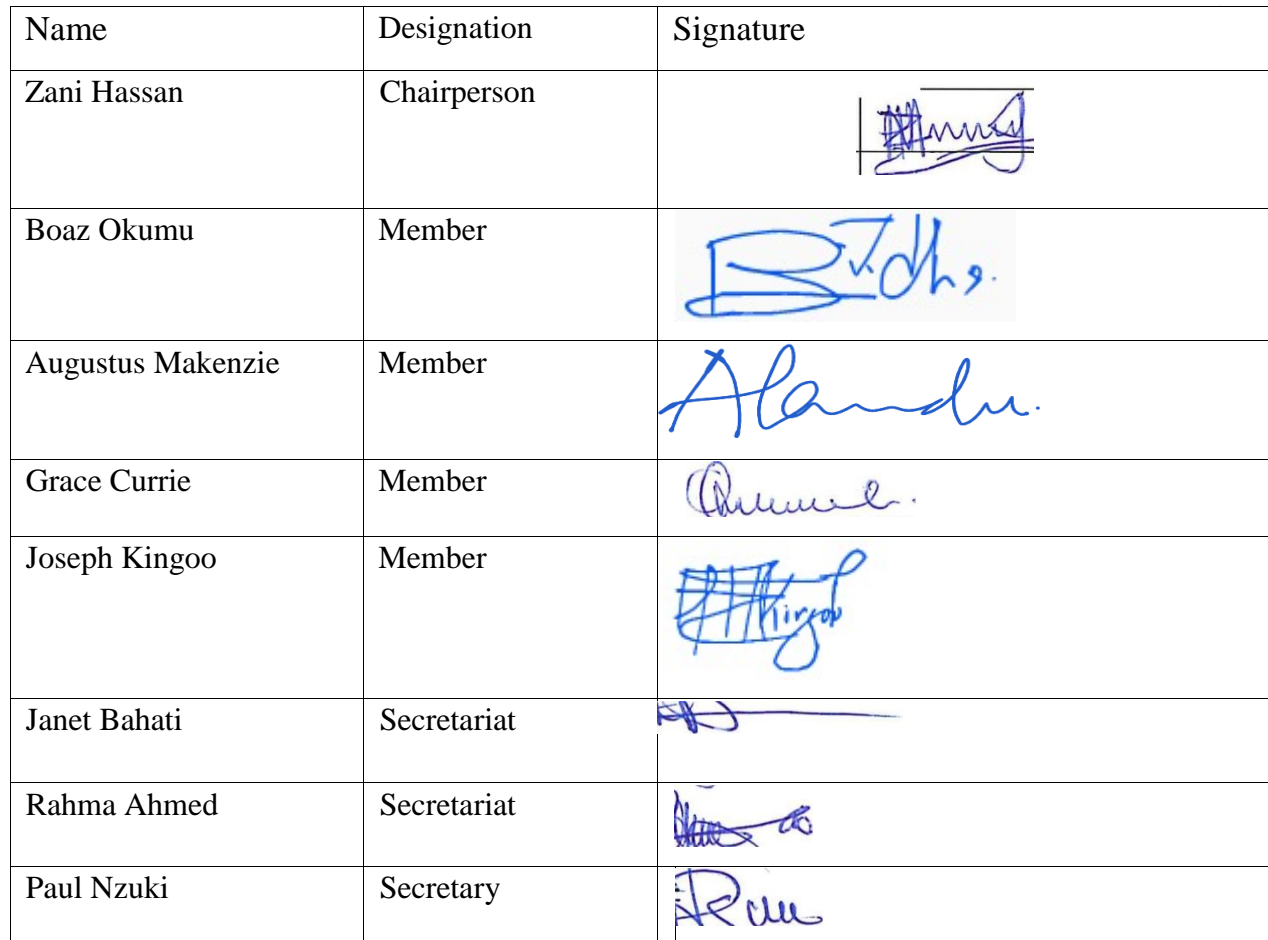 Name Designation Signature
Zani Hassan Chairperson
Boaz Okumu Member
Augustus Makenzie Member
Grace Currie Member
Joseph Kingoo Member Kingoo
Janet Bahati Secretariat
Rahma Ahmed Secretariat
Paul Nzuki Secretary